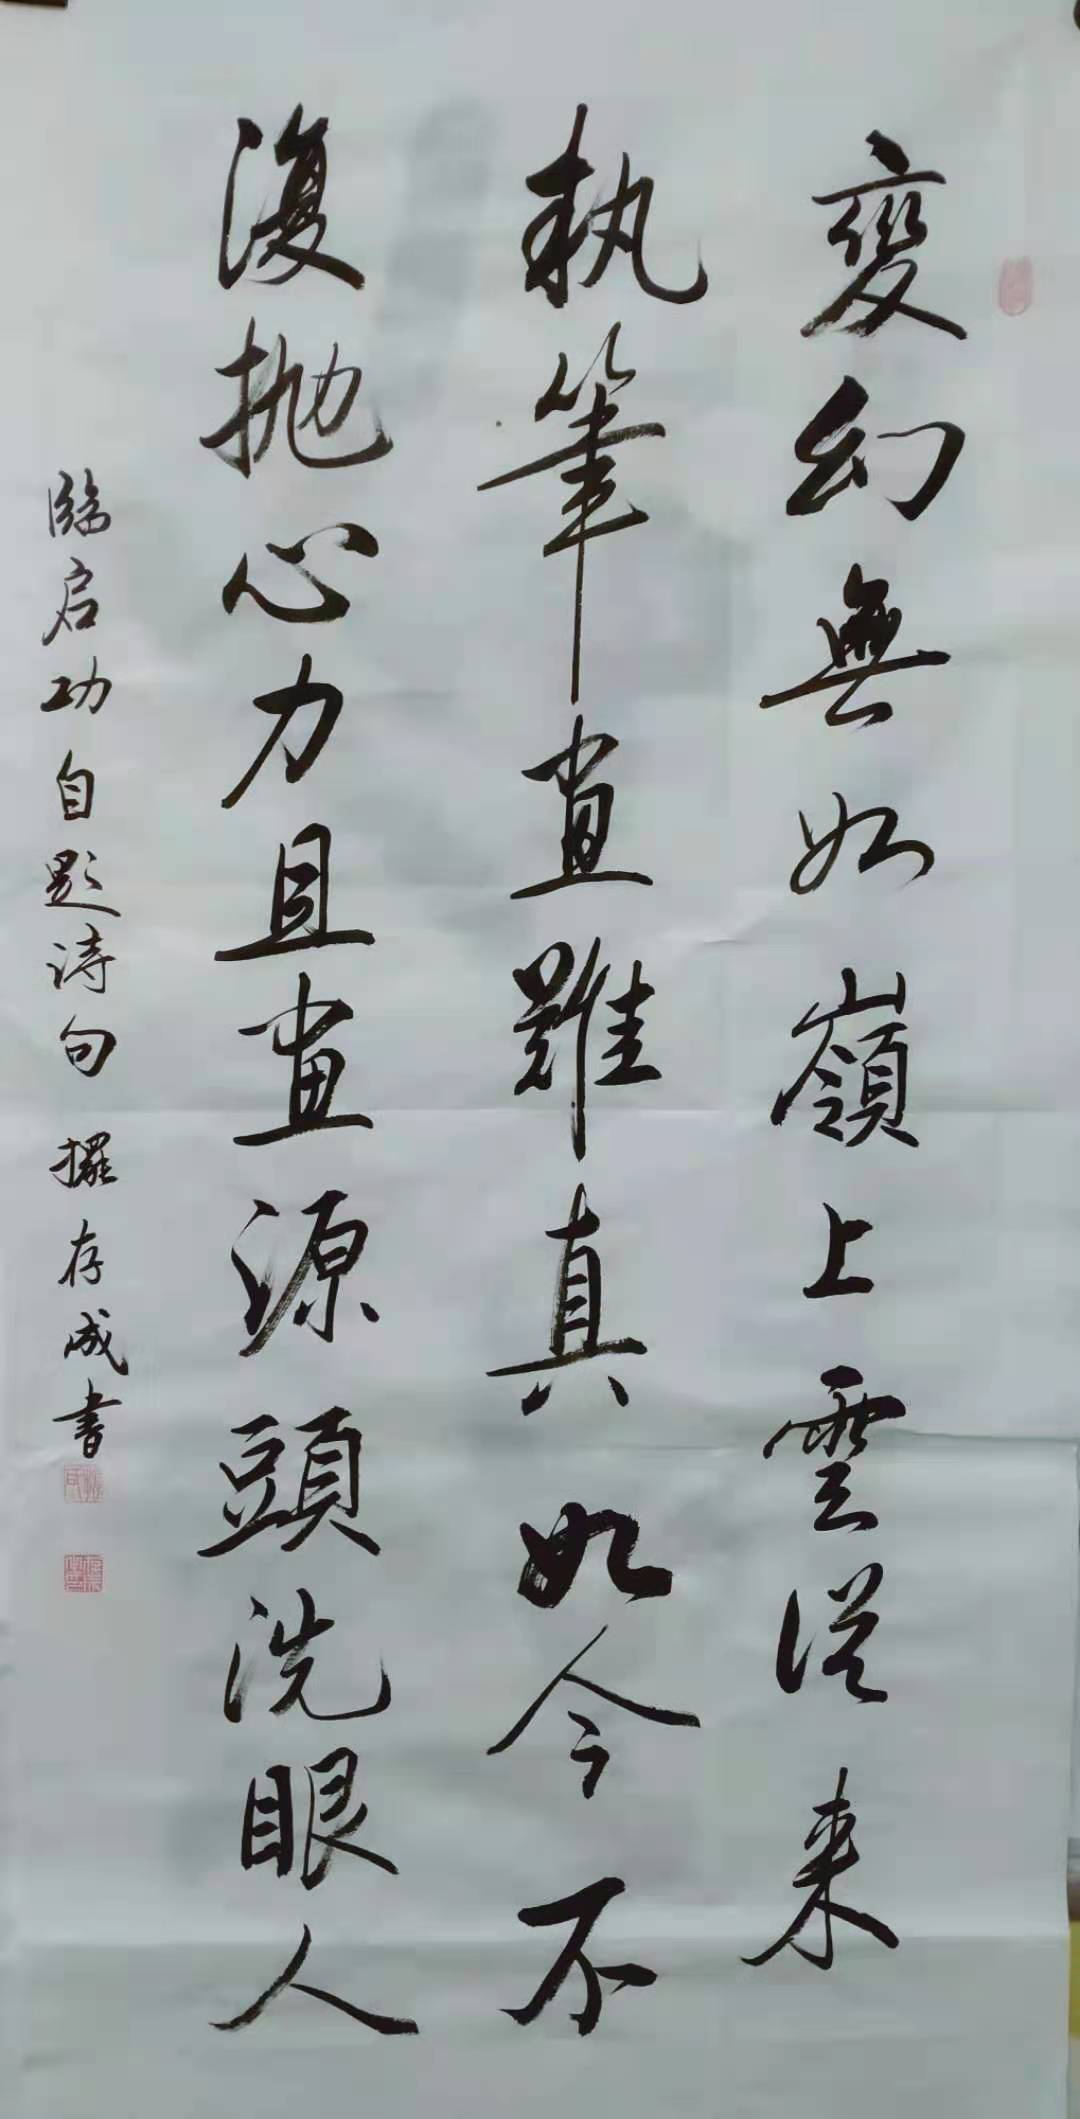 變幻無如嶺上雲從来
執筆畫難真如今不
復抛心力且畫源頭洗眼人
臨启功自题诗句 擢存成書